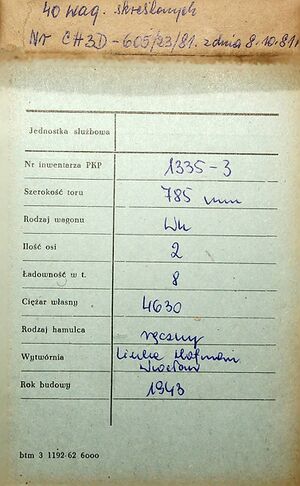 40 wag. skreślonych
Nr CH3D-605/23/81. z dnia 8.10.81r
Jednostka służbowa
Nr inwentarza PKP 1335-3
Szerokość toru 785 mm
Rodzaj wagonu Wu
Ilość osi 2
Ładowność w t. 8
Ciężar własny 4630
Rodzaj hamulca ręczny
Wytwórnia Linke Hofman
Wrocław
Rok budowy 1943
btm 3 1192-62 6000